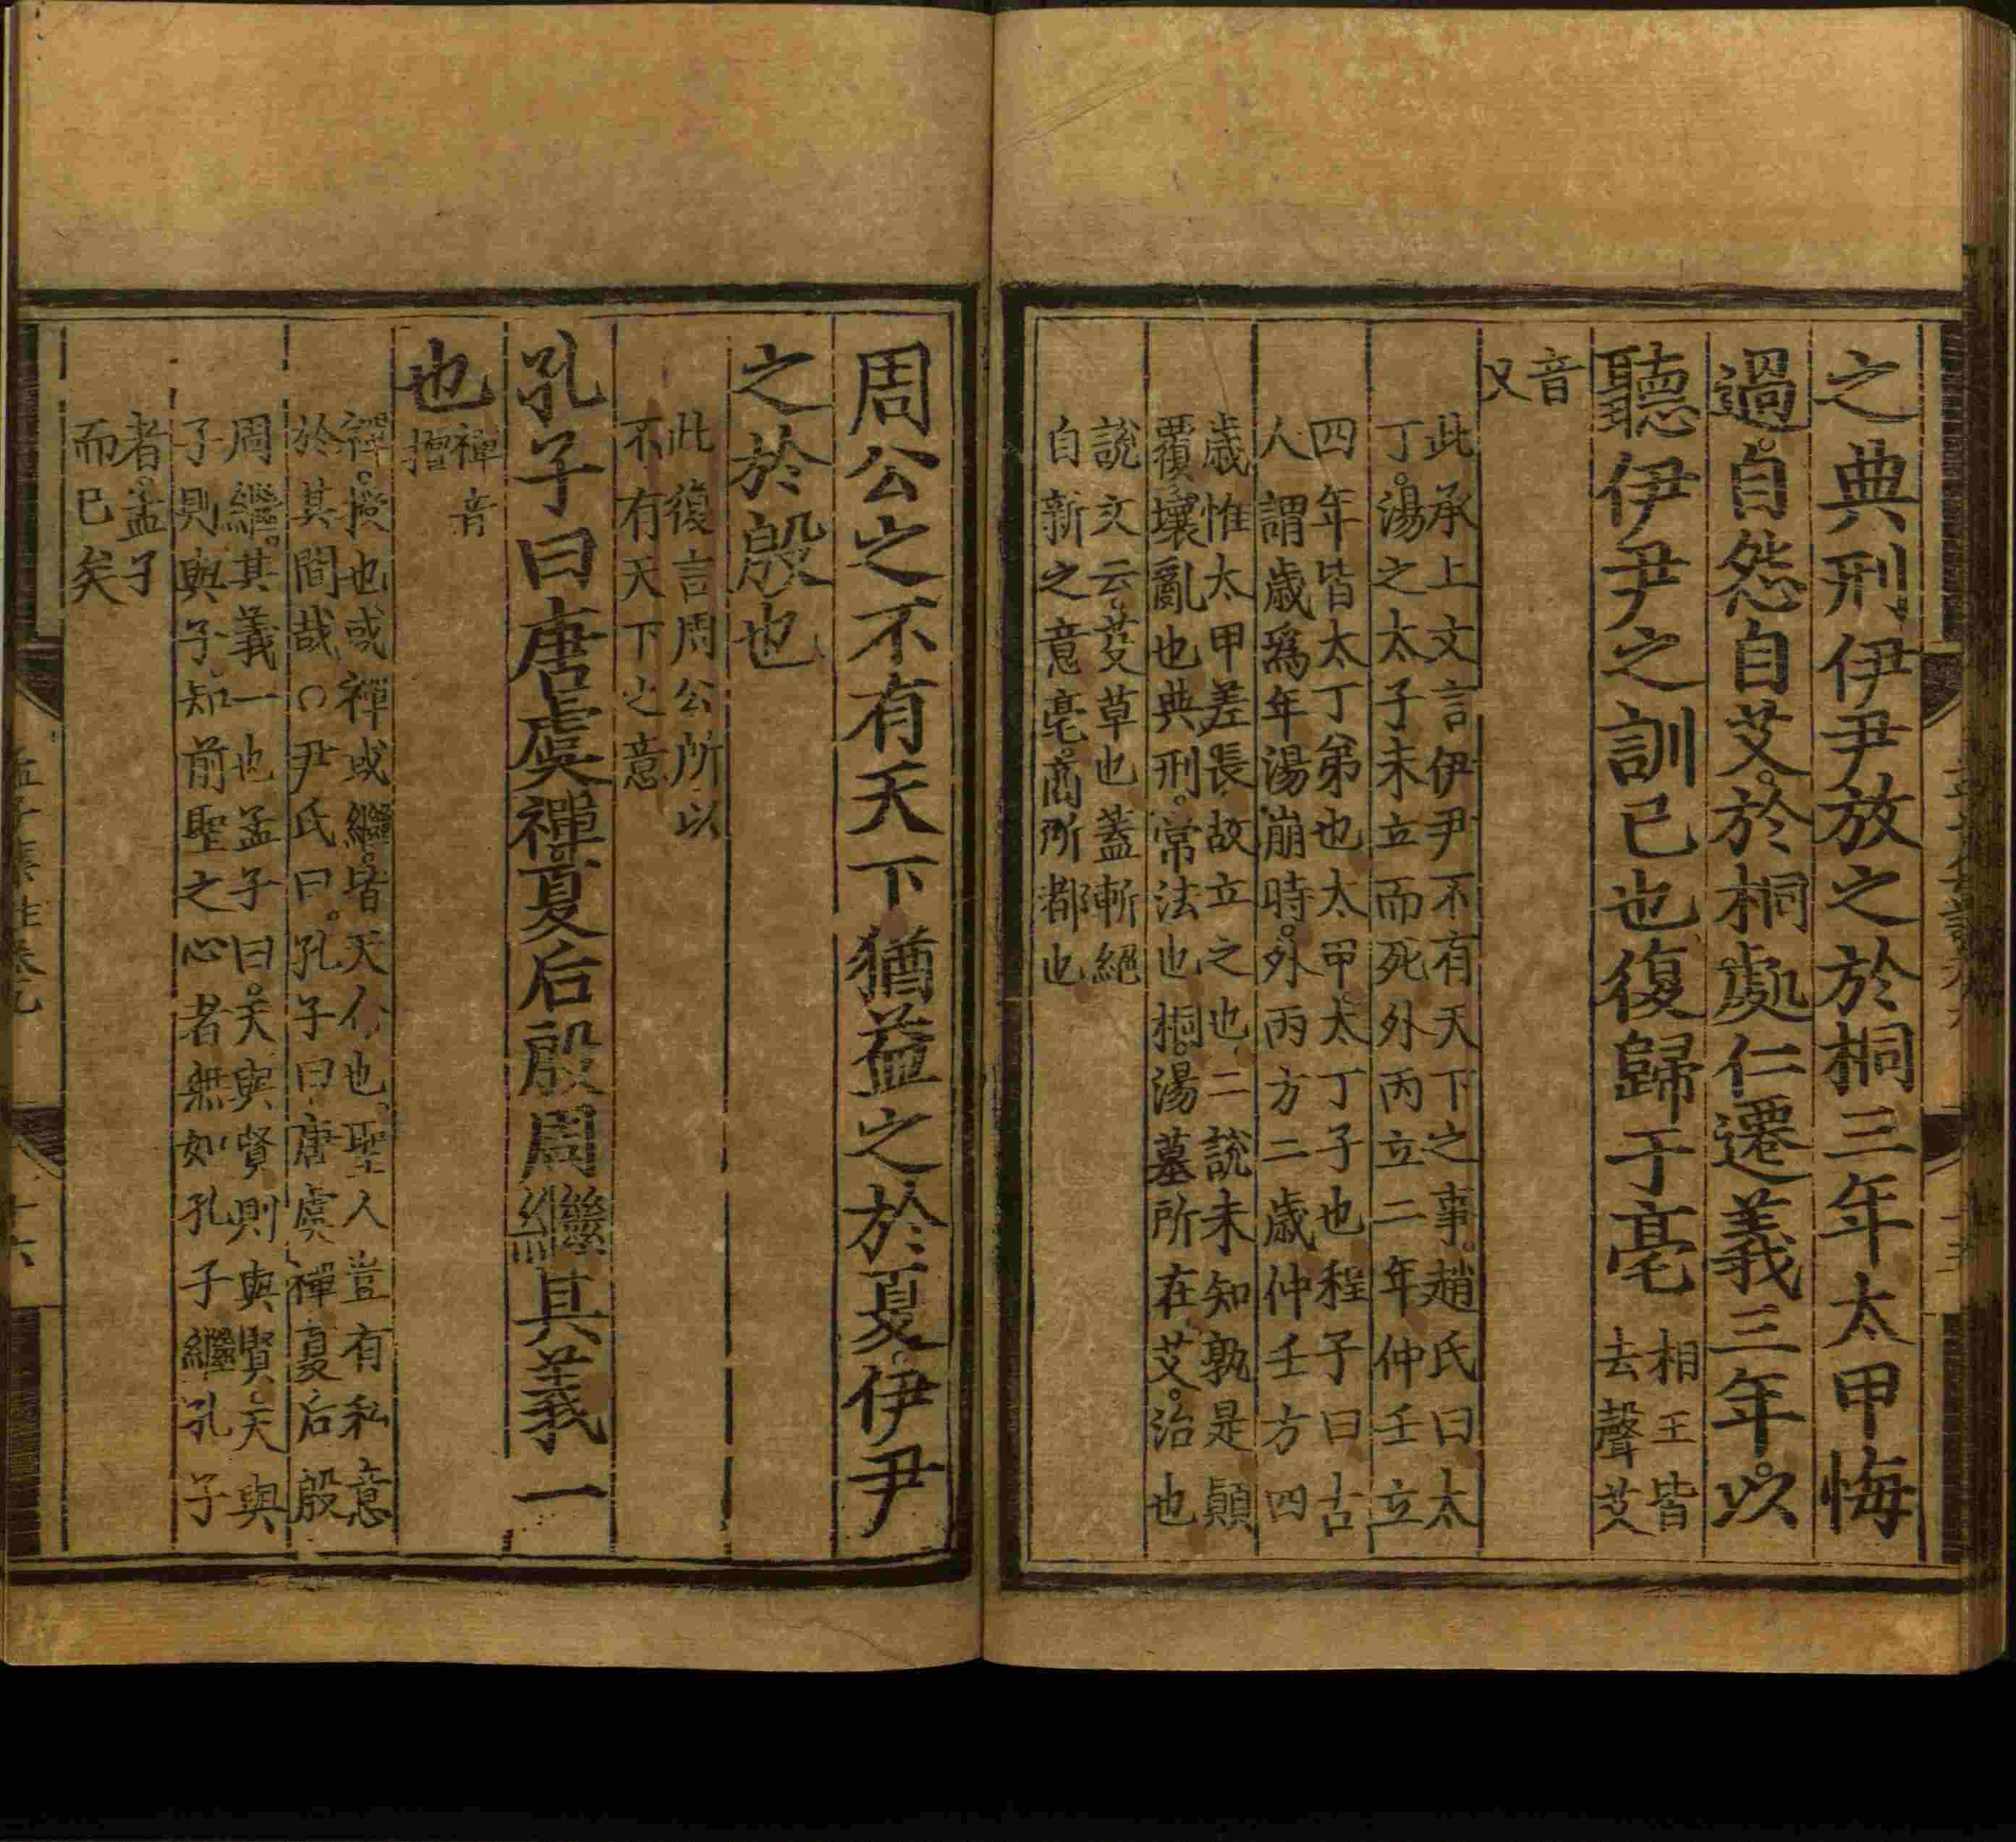 之典刑伊尹放之於桐三年太甲悔
過自怨自艾於桐處仁遷義三年以
聽伊尹之訓已也復歸于亳
相王皆
去聲艾
音
乂
此承上文言伊尹不有天下之事趙氏曰太
丁湯之太子未立而死外丙立二年仲壬立
四年皆太丁弟也太甲太丁子也程子曰古
人謂歲爲年湯崩時外丙方二歲仲壬方四
歲惟太甲差長故立之也二說未知孰是顚
覆壞亂也典刑常法也桐湯墓所在艾治也
說文云芟草也蓋斬絕
自新之意亳商所都也
周公之不有天下猶益之於夏伊尹
之於殷也
此復言周公所以
不有天下之意
孔子曰唐虞禪夏后殷周繼其義一
也
禪音
擅
禪授也或禪或繼皆天命也聖人豈有私意
於其間哉○尹氏曰孔子曰唐虞禪夏后殷
周繼其義一也孟子曰天與賢則與賢天與
子則與子知前聖之心者無如孔子繼孔子
者孟子
而已矣
孟子集註卷九
十六